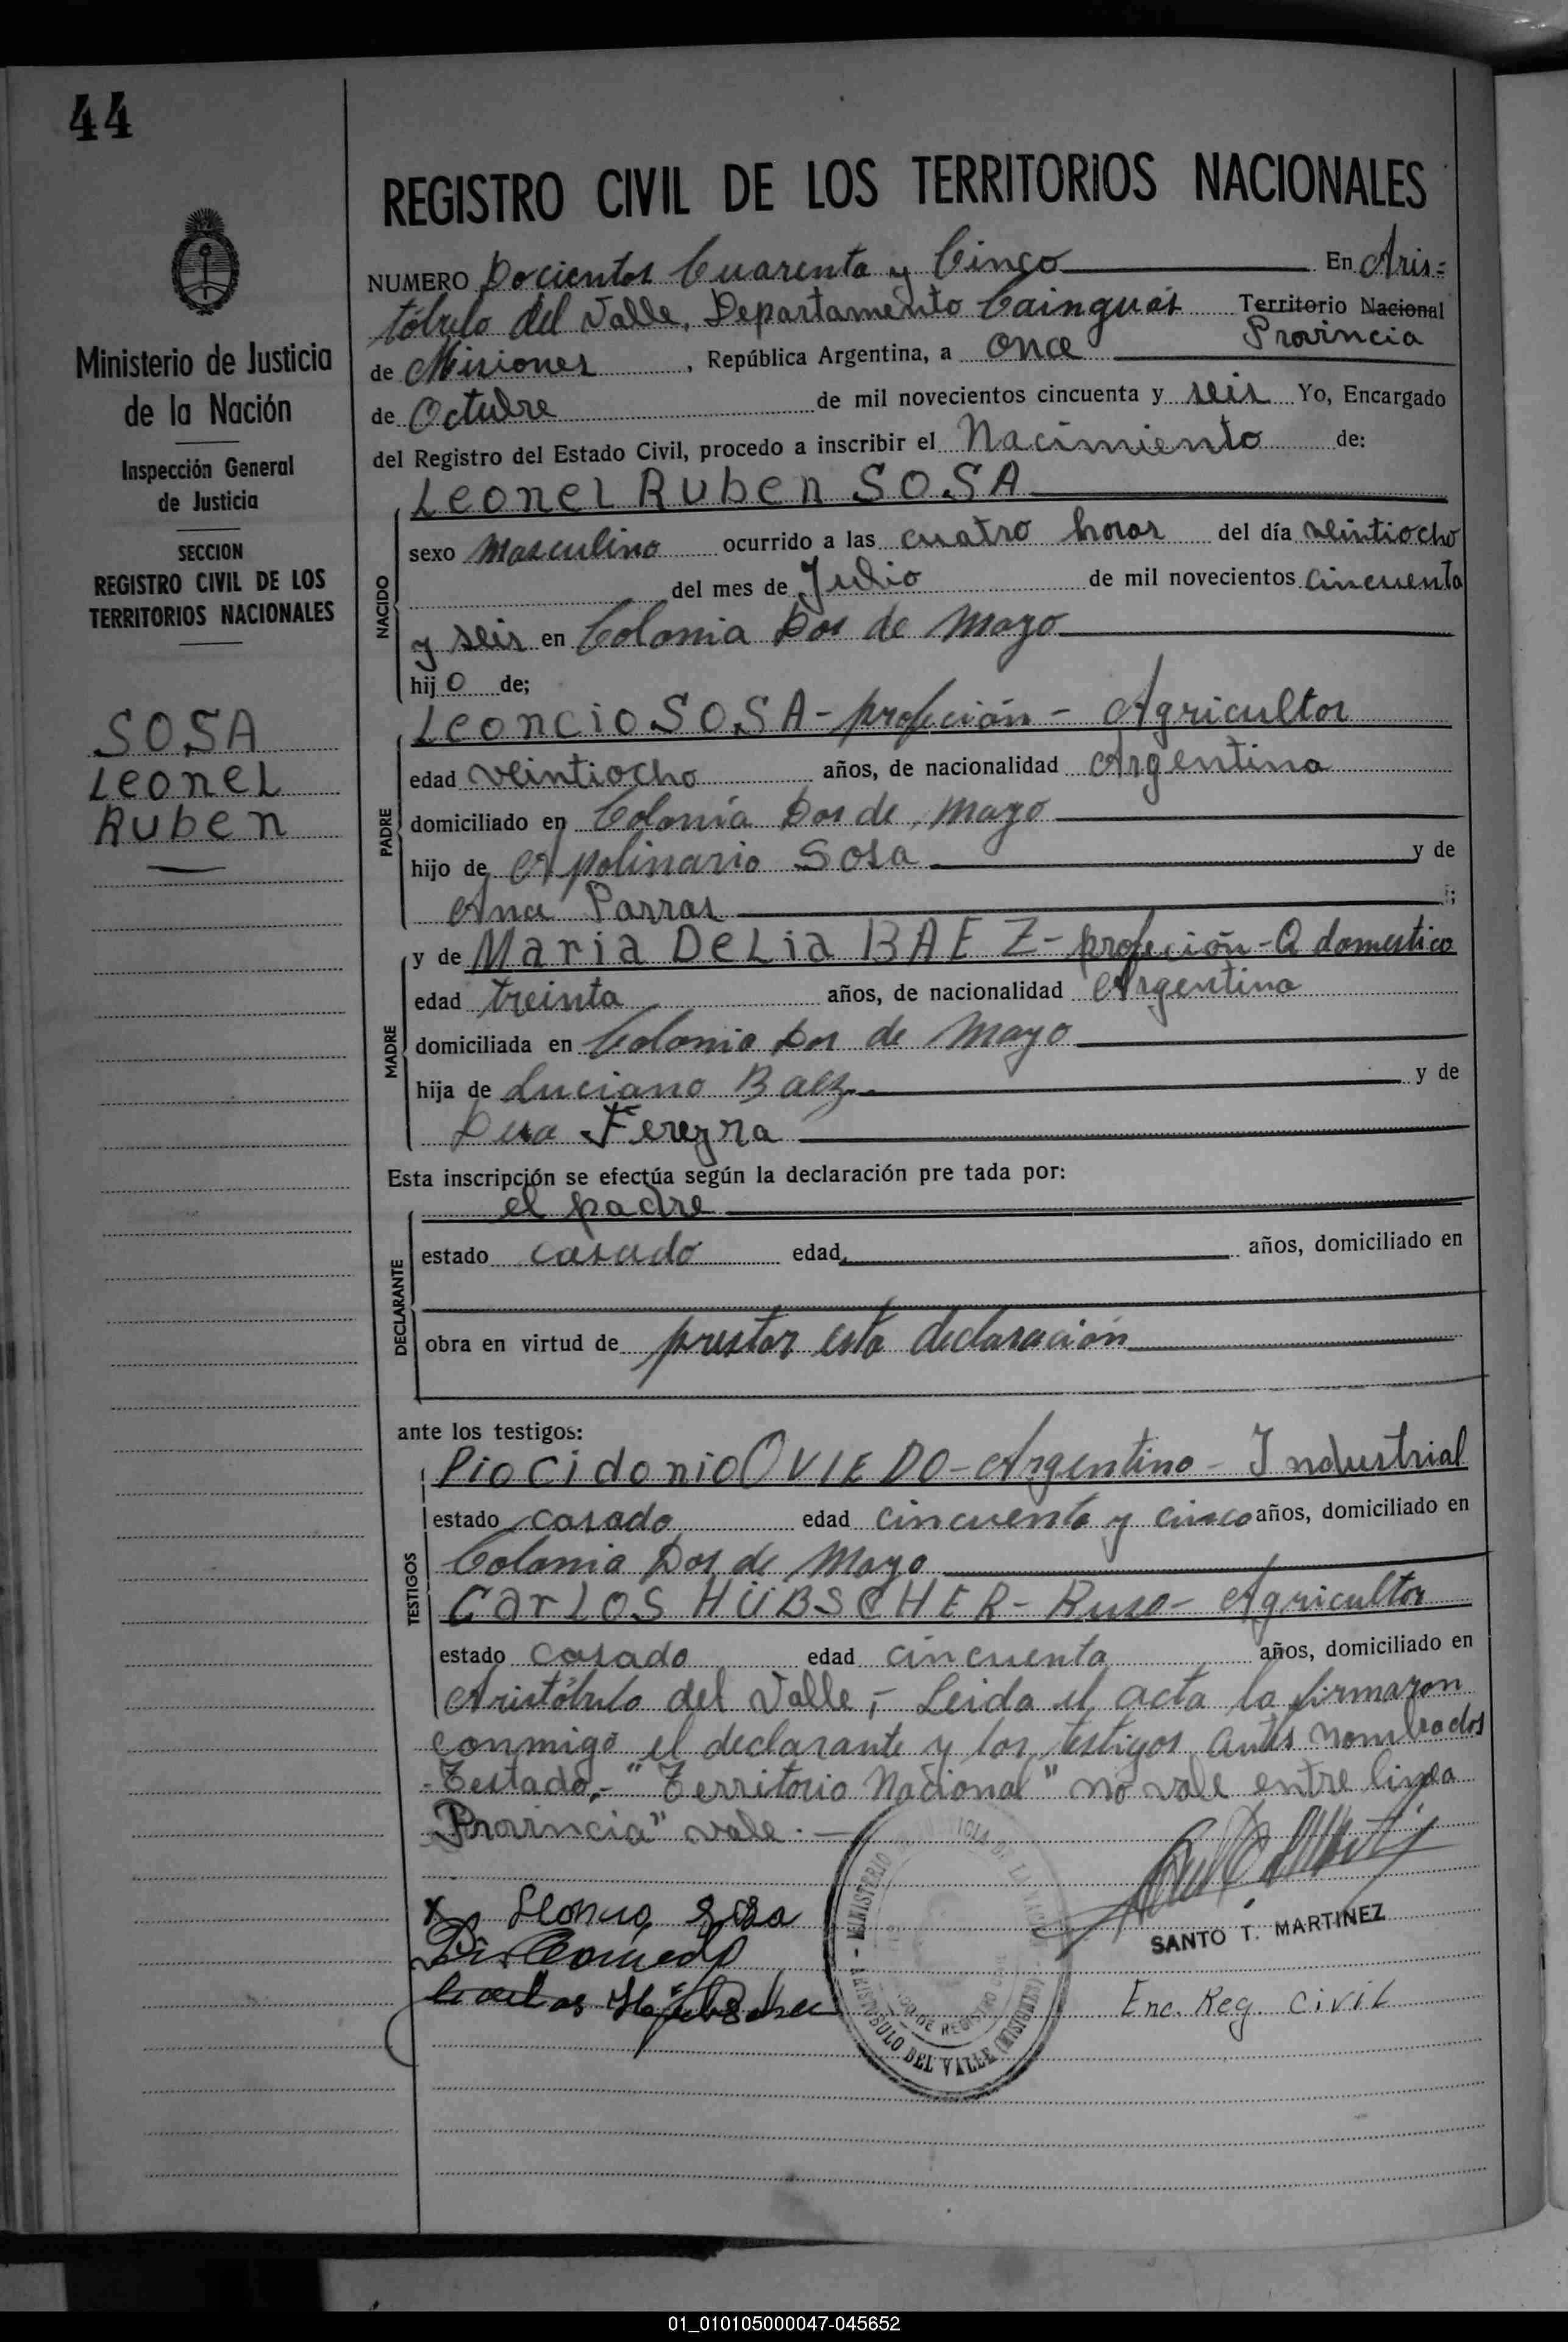 44
REGISTRO CIVIL DE LOS TERRITORIOS NACIONALES
Ministerio de Justicia
de la Nación
Inspección General
de Justicia
SECCION
REGISTRO CIVIL DE LOS
TERRITORIOS NACIONALES
SOSA
Leonel
Ruben
NUMERO Docientos Cuarenta y Cinco En Aris=
tóbulo del Valle, Departamento Cainguás Territorio Nacional
Provincia
de Misiones, República Argentina, a once
de Octubre de mil novecientos cincuenta y seis Yo, Encargado
del Registro del Estado Civil, procedo a inscribir el Nacimiento de:
NACIDO
Leonel Ruben SOSA
sexo Masculino ocurrido a las cuatro horas del día veintiocho
del mes de Julio de mil novecientos cincuenta
y seis en Colonia Dos de Mayo
hij o de;
PADRE
Leoncio SOSA - profeción - Agricultor
edad veintiocho años, de nacionalidad Argentina
domiciliado en Colonia Dos de Mayo
hijo de Apolinario Sosa y de
Ana Parras ;
MADRE
y de Maria Delia BAEZ - profeción - Q domestico
edad treinta años, de nacionalidad Argentina
domiciliada en Colonia Dos de Mayo
hija de Luciano Baez y de
Fereyra
Esta inscripción se efectúa según la declaración pre tada por:
DECLARANTE
el padre
estado casado edad años, domiciliado en
obra en virtud de prestar esta declaración
ante los testigos:
TESTIGOS
Pio Cidonio OVIEDO - Argentino - Industrial
estado casado edad cincuenta y cinco años, domiciliado en
Colonia Dos de Mayo
Carlos HÜBSCHER - Ruso - Agricultor
estado casado edad cincuenta años, domiciliado en
Aristóbulo del Valle,- Leida el acta la firmaron
conmigo el declarante y los testigos antes nombrados
Testado.- "Territorio Nacional" no vale entre linea
Provincia" vale.-
x Leoncio Sosa
Carlos Hübscher
MINISTERIO DE JUSTICIA DE LA NACION
ARISTOBULO DEL VALLE (MISIONES)
SANTO T. MARTINEZ
Enc. Reg. Civil
01_010105000047-045652